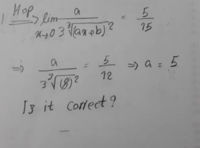 1) Hop ⟹ lim x→0 a / 3 ∛(ax+b)² = 5/15
⟹ a / 3 ∛(8)² = 5/12 ⟹ a = 5
Is it correct?